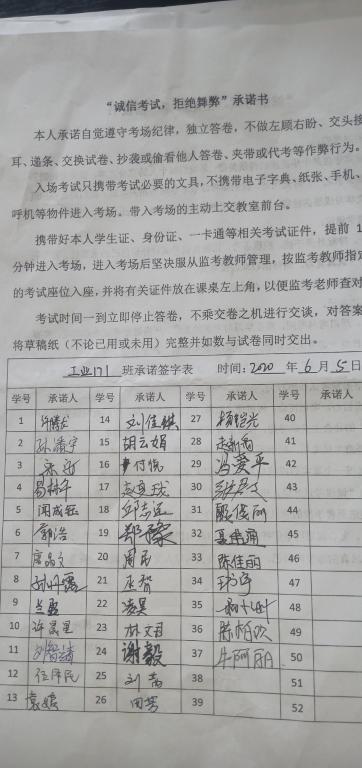 “诚信考试，拒绝舞弊”承诺书
本人承诺自觉遵守考场纪律，独立答卷，不做左顾右盼、交头接
耳、递条、交换试卷、抄袭或偷看他人答卷、夹带或代考等作弊行为。
入场考试只携带考试必要的文具，不携带电子字典、纸张、手机、
呼机等物件进入考场。带入考场的主动上交教室前台。
携带好本人学生证、身份证、一卡通等相关考试证件，提前 1
分钟进入考场，进入考场后坚决服从监考教师管理，按监考教师指定
的考试座位入座，并将有关证件放在课桌左上角，以便监考老师查对
考试时间一到立即停止答卷，不乘交卷之机进行交谈，对答案
将草稿纸（不论已用或未用）完整并如数与试卷同时交出。
工业171 班承诺签字表 时间：2020 年 6 月 5 日
学号 承诺人 学号 承诺人 学号 承诺人 学号 承诺人
1 14 刘佳琪 27 杨铠光 40
2 15 胡云娟 28 41
3 16 付悦 29 冯爱平 42
4 易林华 17 30 43
5 闻成钰 18 邱志远 31 44
6 19 郑豫 32 45
7 20 周民 33 陈佳丽 46
8 21 巫智 34 47
9 22 凌昊 35 48
10 许晨星 23 林文昌 36 陈柏欢 49
11 刘智清 24 谢毅 37 牛丽丽 50
12 位泽民 25 刘营 38 51
13 袁媛 26 田芳 39 52